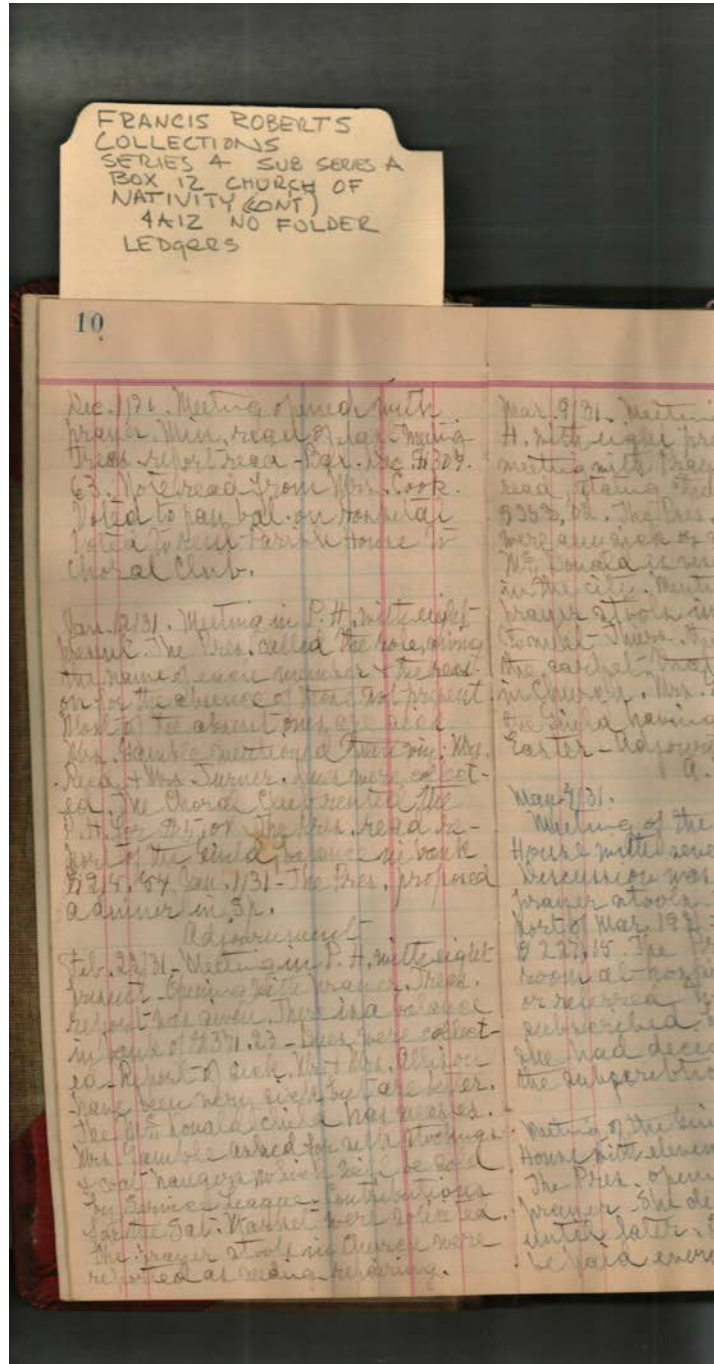 FRANCIS ROBERTS
COLLECTIONS
SERIES 4 SUB SERIES A
BOX 12 CHURCH OF
NATIVITY (CONT)
4A12 NO FOLDER
LEDgeRS
10
Dec. 1, Meeting opened with
prayer. Min. read of last meeting
Treas. report read - Bal. Dec. $307.
63. Note read from Mrs. Cook.
Voted to pay bal. on Hospital
Voted to Rent Parish House to
Choral Club.
Jan. 12/31. Meeting in P. H. with eight
present. The Pres. called the role, giving
the name of each member & the reas-
on for the absence of those not present
Most of the absent ones are sick
Mrs. Gamble mentioned Mrs.
Reed & Mrs. Turner. Dues were collect-
ed. The Choral Club rented the
P. H. for $5.00. The Pres. read re-
port of the Guild, balance in bank
Jan. 1/31 - The Pres. proposed
a dinner in Sp.
Adjournment
Feb. 23/31 - Meeting in P. H. with eight
present - Opening with prayer. Treas.
report was given. There is a balance
in bank of $371.23 - Dues were collect-
ed - Report of sick. Mr & Mrs. Allison
have been very sick but are better.
The McDonald child has measles.
Mrs. Gamble asked for silk stockings
& coat-hangers to be sold
by Service League. Contributions
for the Sat. Market were solicited.
The Prayer stools in Church were
reported as needing repairing.
Mar. 9/31. Meeting
H. with eight pre
meeting with Pray
read, stating
$353.02. The Pres.
were
Mc Donald is
in the city.
prayer stools in
the
in Church. Mrs.
the Guild having
Easter - Adjourn
May 4/31.
Meeting of the
House with seve
Discussion was
prayer stools -
port of Mar. 19
$227.15. The Pr
room at hosp
or
subscribed
she had deci
the subscriptio
Meeting of the Gui
House with eleven
The Pres. openi
prayer. She de
until later.
be paid every